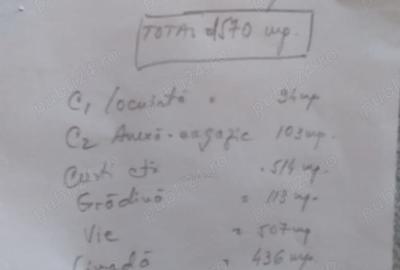 TOTAL 1570 mp.
C1 locuință = 94 mp
C2 Anexă-magazie 103 mp.
Curți c-ți = 514 mp.
Grădină = 113 mp.
Vie = 507 mp
= 436 mp.